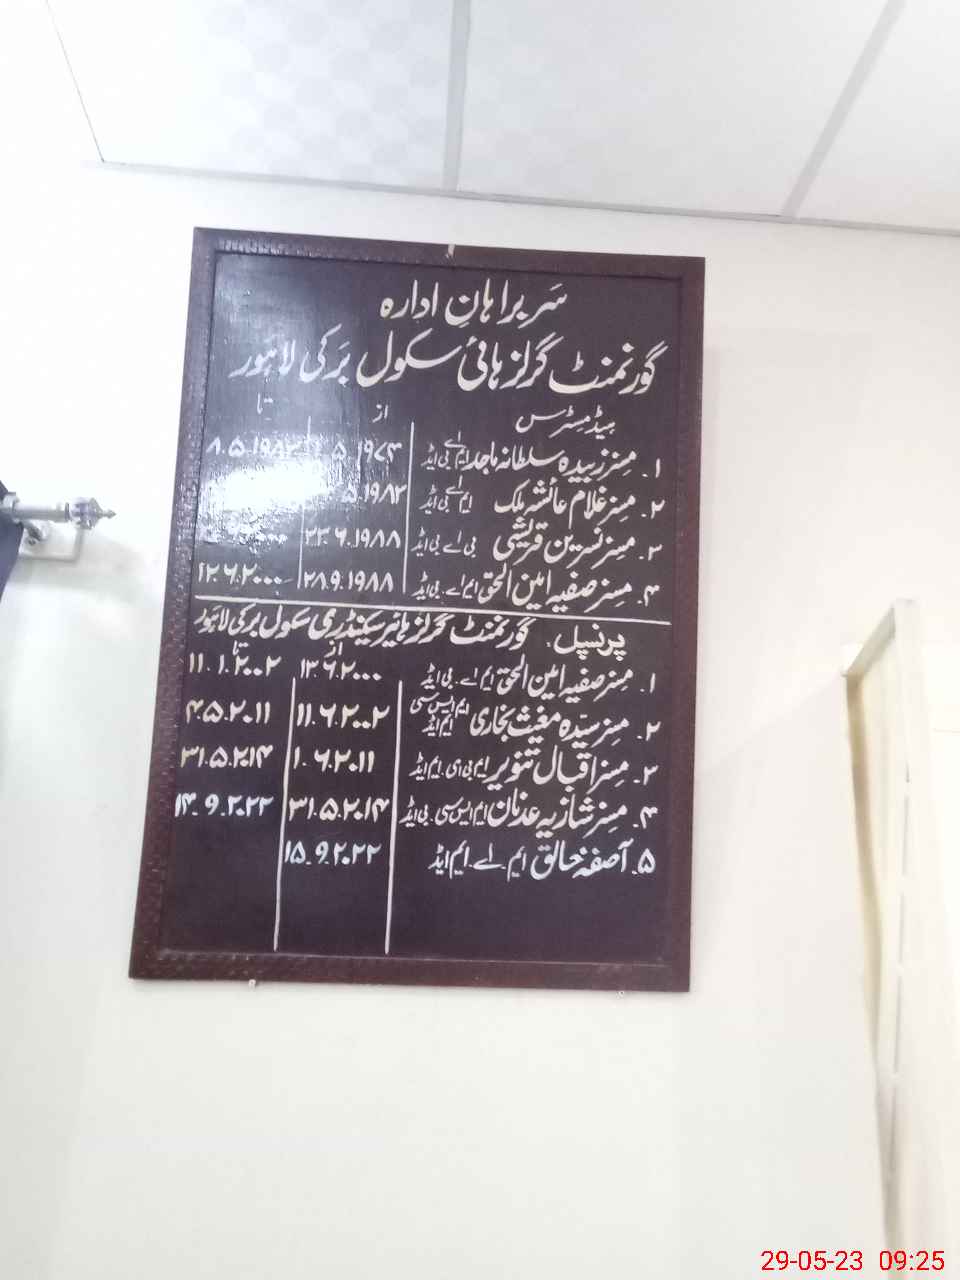 سَربراہانِ ادارہ
گورنمنٹ گرلز ہائی سکول بَرکی لاہَور
ہیڈ مِسٹرس از تا
۱. مسز زبیدہ سلطانہ ماجد ایم اے بی ایڈ ۵.۱۹۷۴ ۸.۵.۱۹۸۲
۲. مسز غلام عائشہ ملک ایم اے بی ایڈ ۵.۱۹۸۲
۳. مسز نسرین قریشی بی اے بی ایڈ ۲۳.۶.۱۹۸۸
۴. مسز صفیہ امین الحق ایم اے. بی ایڈ ۲۸.۹.۱۹۸۸ ۱۲.۶.۲۰۰۰
پرنسپل. گورنمنٹ گرلز ہائیر سیکنڈری سکول برکی لاہَور
از تا
۱. مسز صفیہ امین الحق ایم اے. بی ایڈ ۱۳.۶.۲۰۰۰ ۱۱.۱.۲۰۰۲
۲. مسز سیّدہ مغیث بخاری ایم ایس سی ایم ایڈ ۱۱.۶.۲۰۰۲ ۴.۵.۲۰۱۱
۳. مسز اقبال تنویر ایم بی ای. ایم ایڈ ۱.۶.۲۰۱۱ ۳۱.۵.۲۰۱۴
۴. مسز شازیہ عدنان ایم ایس سی. بی ایڈ ۳۱.۵.۲۰۱۴ ۱۴.۹.۲۰۲۲
۵. آصفہ خالق ایم. اے. ایم ایڈ ۱۵.۹.۲۰۲۲
29-05-23 09:25